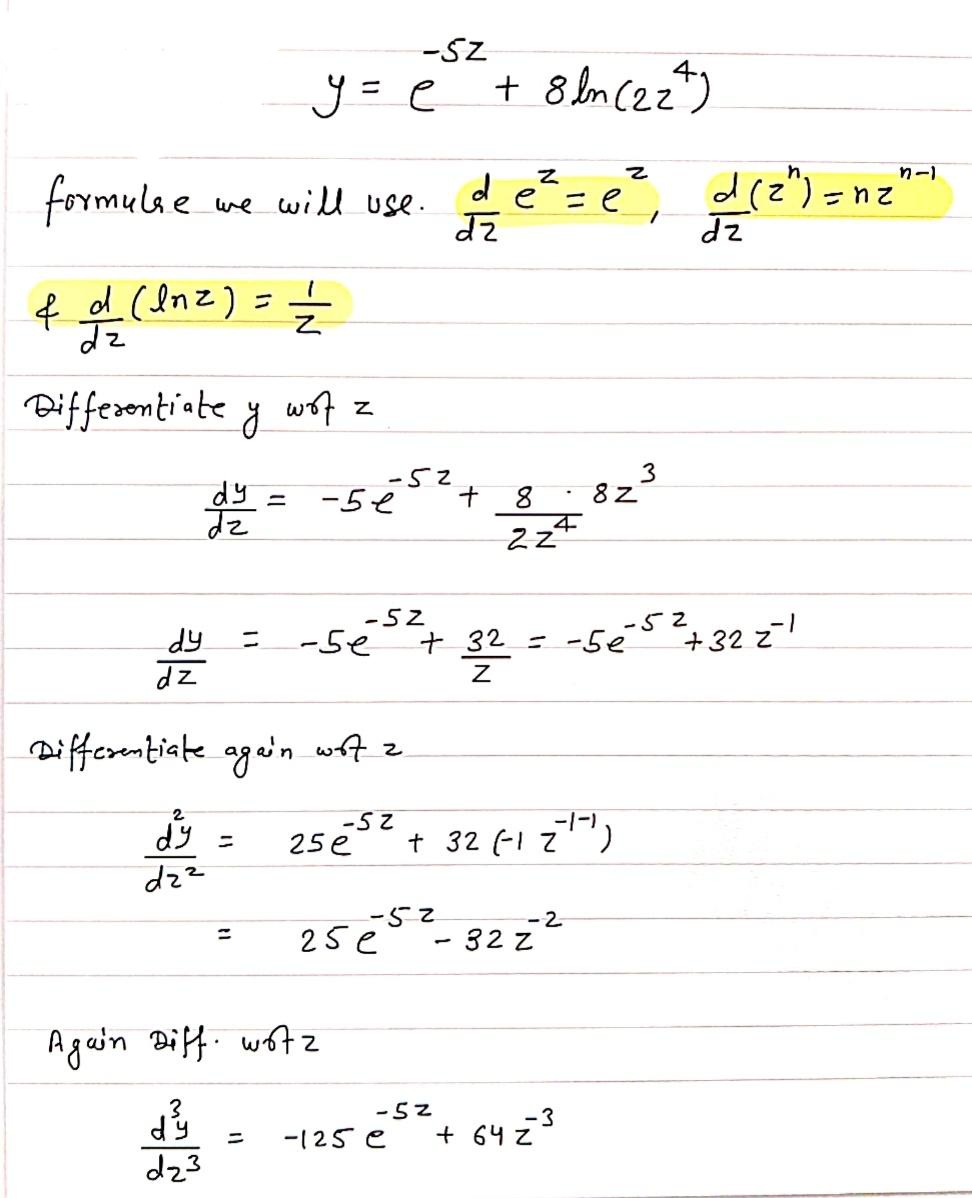 y = e^{-5z} + 8 ln(2z^4)
formulae we will use. d/dz e^z = e^z, d/dz (z^n) = nz^{n-1}
& d/dz (ln z) = 1/z
Differentiate y wrt z
dy/dz = -5e^{-5z} + 8/2z^4 · 8z^3
dy/dz = -5e^{-5z} + 32/z = -5e^{-5z} + 32 z^{-1}
Differentiate again wrt z
d^2y/dz^2 = 25e^{-5z} + 32 (-1 z^{-1-1})
= 25e^{-5z} - 32z^{-2}
Again Diff. wrt z
d^3y/dz^3 = -125 e^{-5z} + 64 z^{-3}